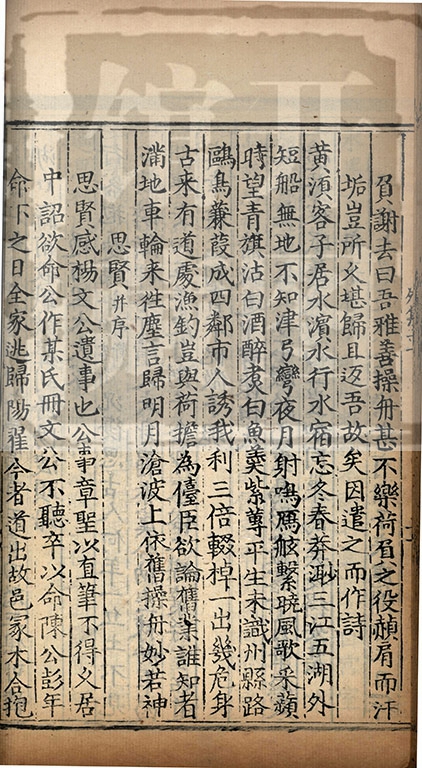 負謝去曰吾雅善操舟甚不樂荷眉之役頳肩而汗
垢豈所以堪歸且返吾故矣因遣之而作詩
黄湏客子居水濵水行水宿忘冬春莽涉三江五湖外
短船無地不知津弓彎夜月射鳴鴈舷繫曉風歌采蘋
時望青旗沽白酒醉煑白魚羮紫蓴平生未識州縣路
鷗鳥蒹葭成四鄰市人誘我利三倍輟棹一出幾危身
古來有道處漁釣豈與荷擔為儓臣欲論舊業誰知者
滿地車輪来往塵言歸明月滄波上依舊操舟妙若神
思賢并序
思賢感楊文公遺事也公事章聖以直筆不得久居
中詔欲命公作某氏冊文公不聽卒以命陳公彭年
命下之日全家逃歸陽翟今者道出故邑冢木合抱